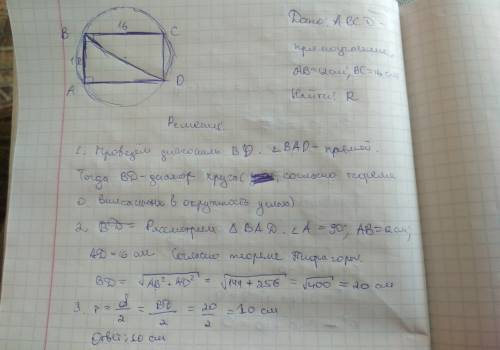 16
B C
12
A D
Дано: ABCD -
прямоугольник,
AB=12см, BC=16см
Найти: R
Решение:
1. Проведем диагональ BD. ∠BAD - прямой.
Тогда BD - диаметр круга (согласно теореме
о вписанных в окружность углах)
2. Рассмотрим △ BAD. ∠A = 90°, AB=12см;
AD=16 см Согласно теореме Пифагора
BD = √AB²+AD² = √144 + 256 = √400 = 20 см
3. r = d/2 = BD/2 = 20/2 = 10 см
Ответ: 10 см